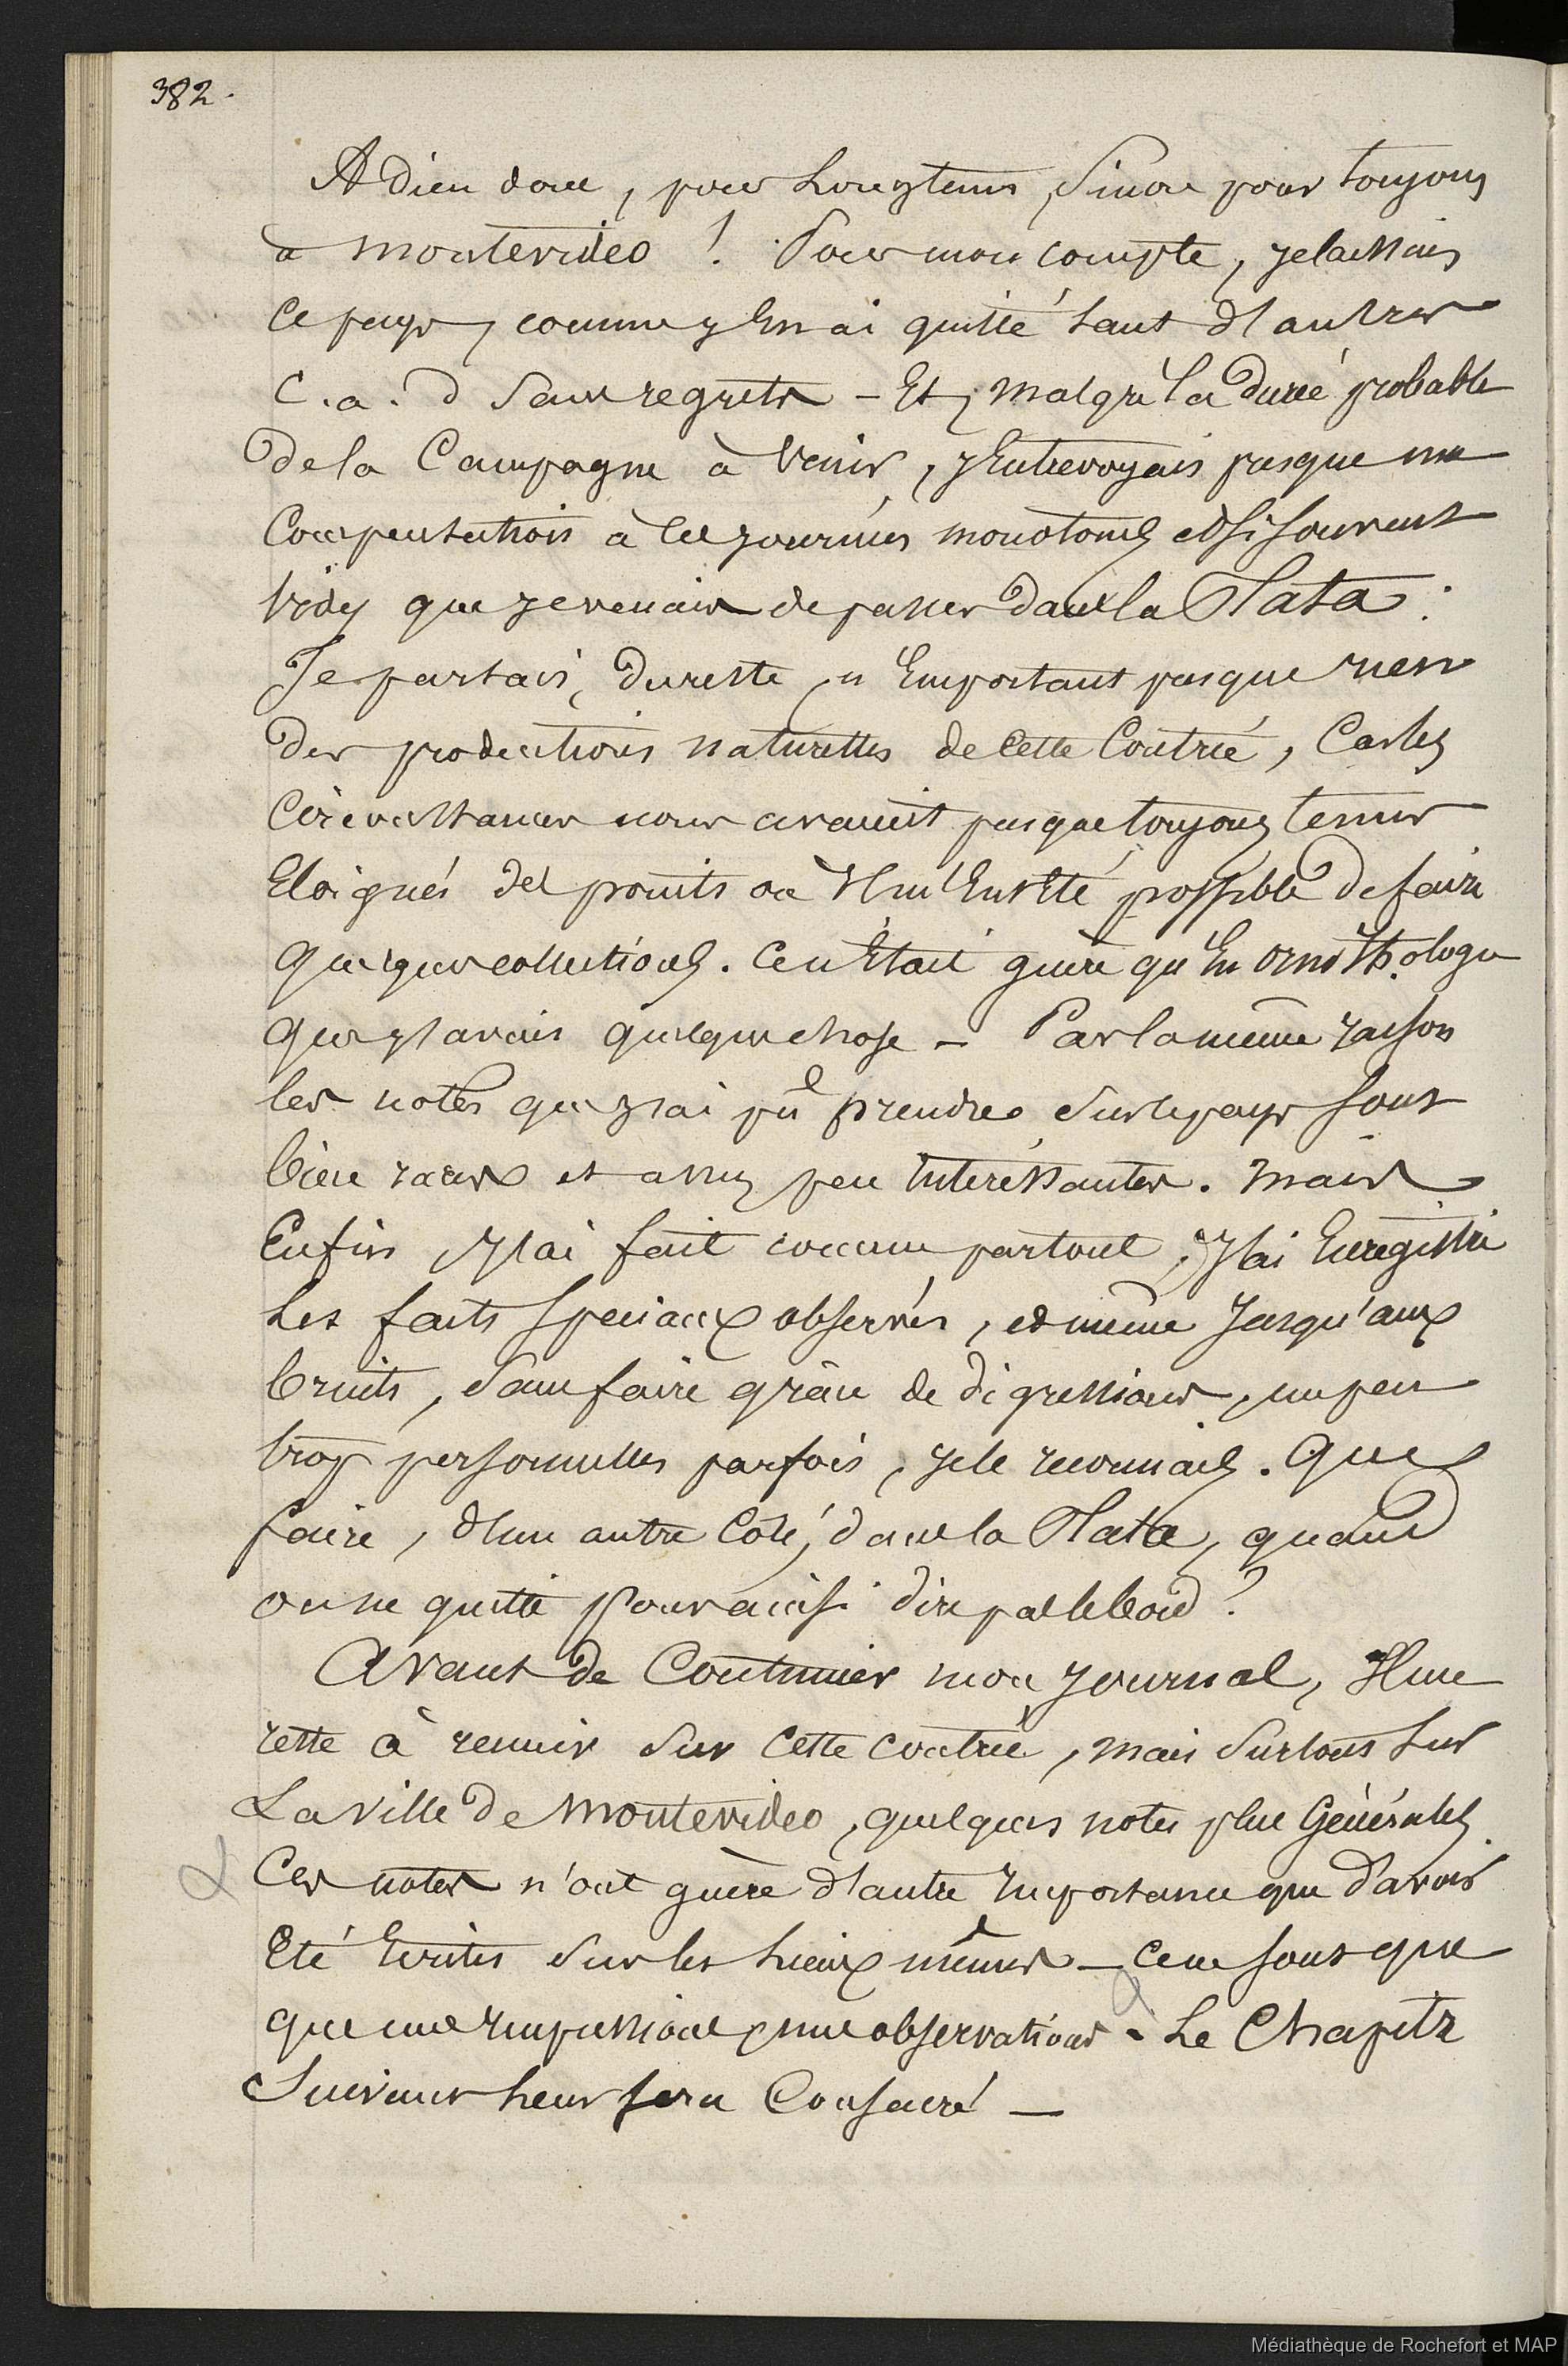 382.
Adieu donc, pour longtems, sinon pour toujours
à Montevideo ! Pour mon compte, je laissais
ce pays, comme j'en ai quitté tant d'autres
c. a. d sans regrets - Et, malgré la durée probable
de la Campagne à venir, j'entrevoyais presque une
Compensation à ces journées monotones et si souvent
vides que je venais de passer dans la Plata.
Je partais, du reste, n'emportant presque rien
des productions naturelles de cette Contrée, Car les
Circonstances nous avaient presque toujours tenus
Eloignés des points où il m'eut été possible de faire
quelques collections. Ce n'était guère qu'en ornithologie
que j'avais quelque chose - Par la même raison
les notes que j'ai pû prendre sur le pays sont
bien rares et assez peu intéressantes. Mais
Enfin j'ai fait comme partout, j'ai Enregistré
les faits speciaux observés, et même jusqu'aux
bruits, sans faire grâce de digressions, un peu
trop personnelles parfois, je le reconnais. Que
faire, d'un autre côté, dans la Plata, quand
on ne quitte pour ainsi dire pas le bord ?
Avant de Continuer mon journal, Il me
reste à reunir sur cette contrée, mais surtout sur
La ville de Montevideo, quelques notes plus Générales.
Ces notes n'ont guère d'autre importance que d'avoir
Eté écrites sur les lieux mêmes - Ce ne sont que
que mes impressions, mes observations. Le Chapitre
Suivant leur sera Consacré -
Médiathèque de Rochefort et MAP